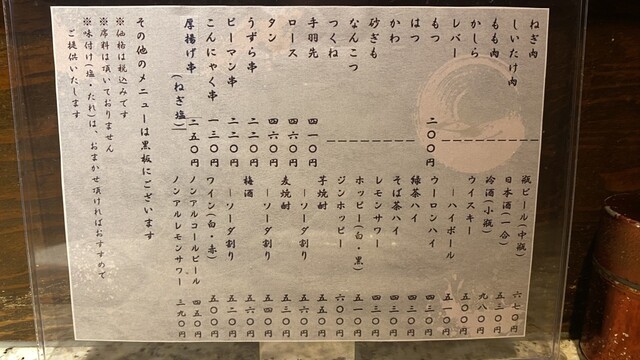 ねぎ肉
しいたけ肉
もも肉
かしら
レバー
もつ 二〇〇円
はつ
かわ
砂ぎも
なんこつ
つくね
手羽先 四一〇円
ロース 四六〇円
タン 四六〇円
うずら串 二二〇円
ピーマン串 二二〇円
こんにゃく串 一三〇円
厚揚げ串(ねぎ塩) 二五〇円
瓶ビール(中瓶) 六七〇円
日本酒(一合) 五三〇円
冷酒(小瓶) 九八〇円
ウイスキー 五〇〇円
―ハイボール 五一〇円
ウーロンハイ 四三〇円
緑茶ハイ 四三〇円
そば茶ハイ 四三〇円
レモンサワー 四三〇円
ホッピー(白・黒) 五一〇円
ジンホッピー 六〇〇円
芋焼酎 五五〇円
―ソーダ割り 五六〇円
麦焼酎 五三〇円
―ソーダ割り 五四〇円
梅酒 五六〇円
―ソーダ割り 五二〇円
ワイン(白・赤) 五〇〇円
ノンアルコールビール 四五〇円
ノンアルレモンサワー 三九〇円
その他のメニューは黒板にございます
※価格は税込みです
※席料は頂いておりません
※味付け(塩・たれ)は、おまかせ頂ければおすすめで
ご提供いたします